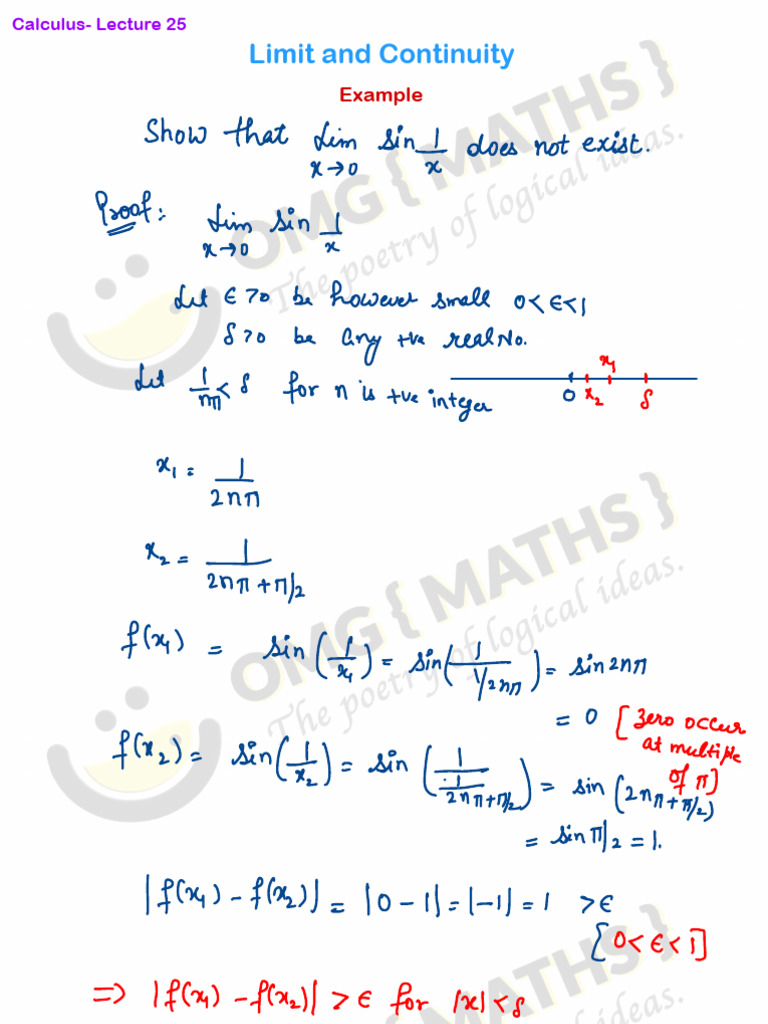 Calculus- Lecture 25
Limit and Continuity
Example
Show that Lim sin 1/x does not exist.
x→0
Proof: Lim sin 1/x
x→0
Let ε>0 be however small 0<ε<1
δ>0 be any +ve real No.
Let 1/nπ < δ for n is +ve integer
x₁
0 x₂ δ
x₁ = 1/2nπ
x₂ = 1/(2nπ + π/2)
f(x₁) = sin(1/x₁) = sin(1/(1/2nπ)) = sin 2nπ
= 0 [Zero occur
at multiple
of π]
f(x₂) = sin(1/x₂) = sin(1/(1/(2nπ+π/2))) = sin (2nπ+π/2)
= sin π/2 = 1.
|f(x₁) - f(x₂)| = |0-1| = |-1| = 1 >ε
[0<ε<1]
=> |f(x₁) - f(x₂)| > ε for |x| < δ
OMG{MATHS}
The poetry of logical ideas.
OMG{MATHS}
The poetry of logical ideas.